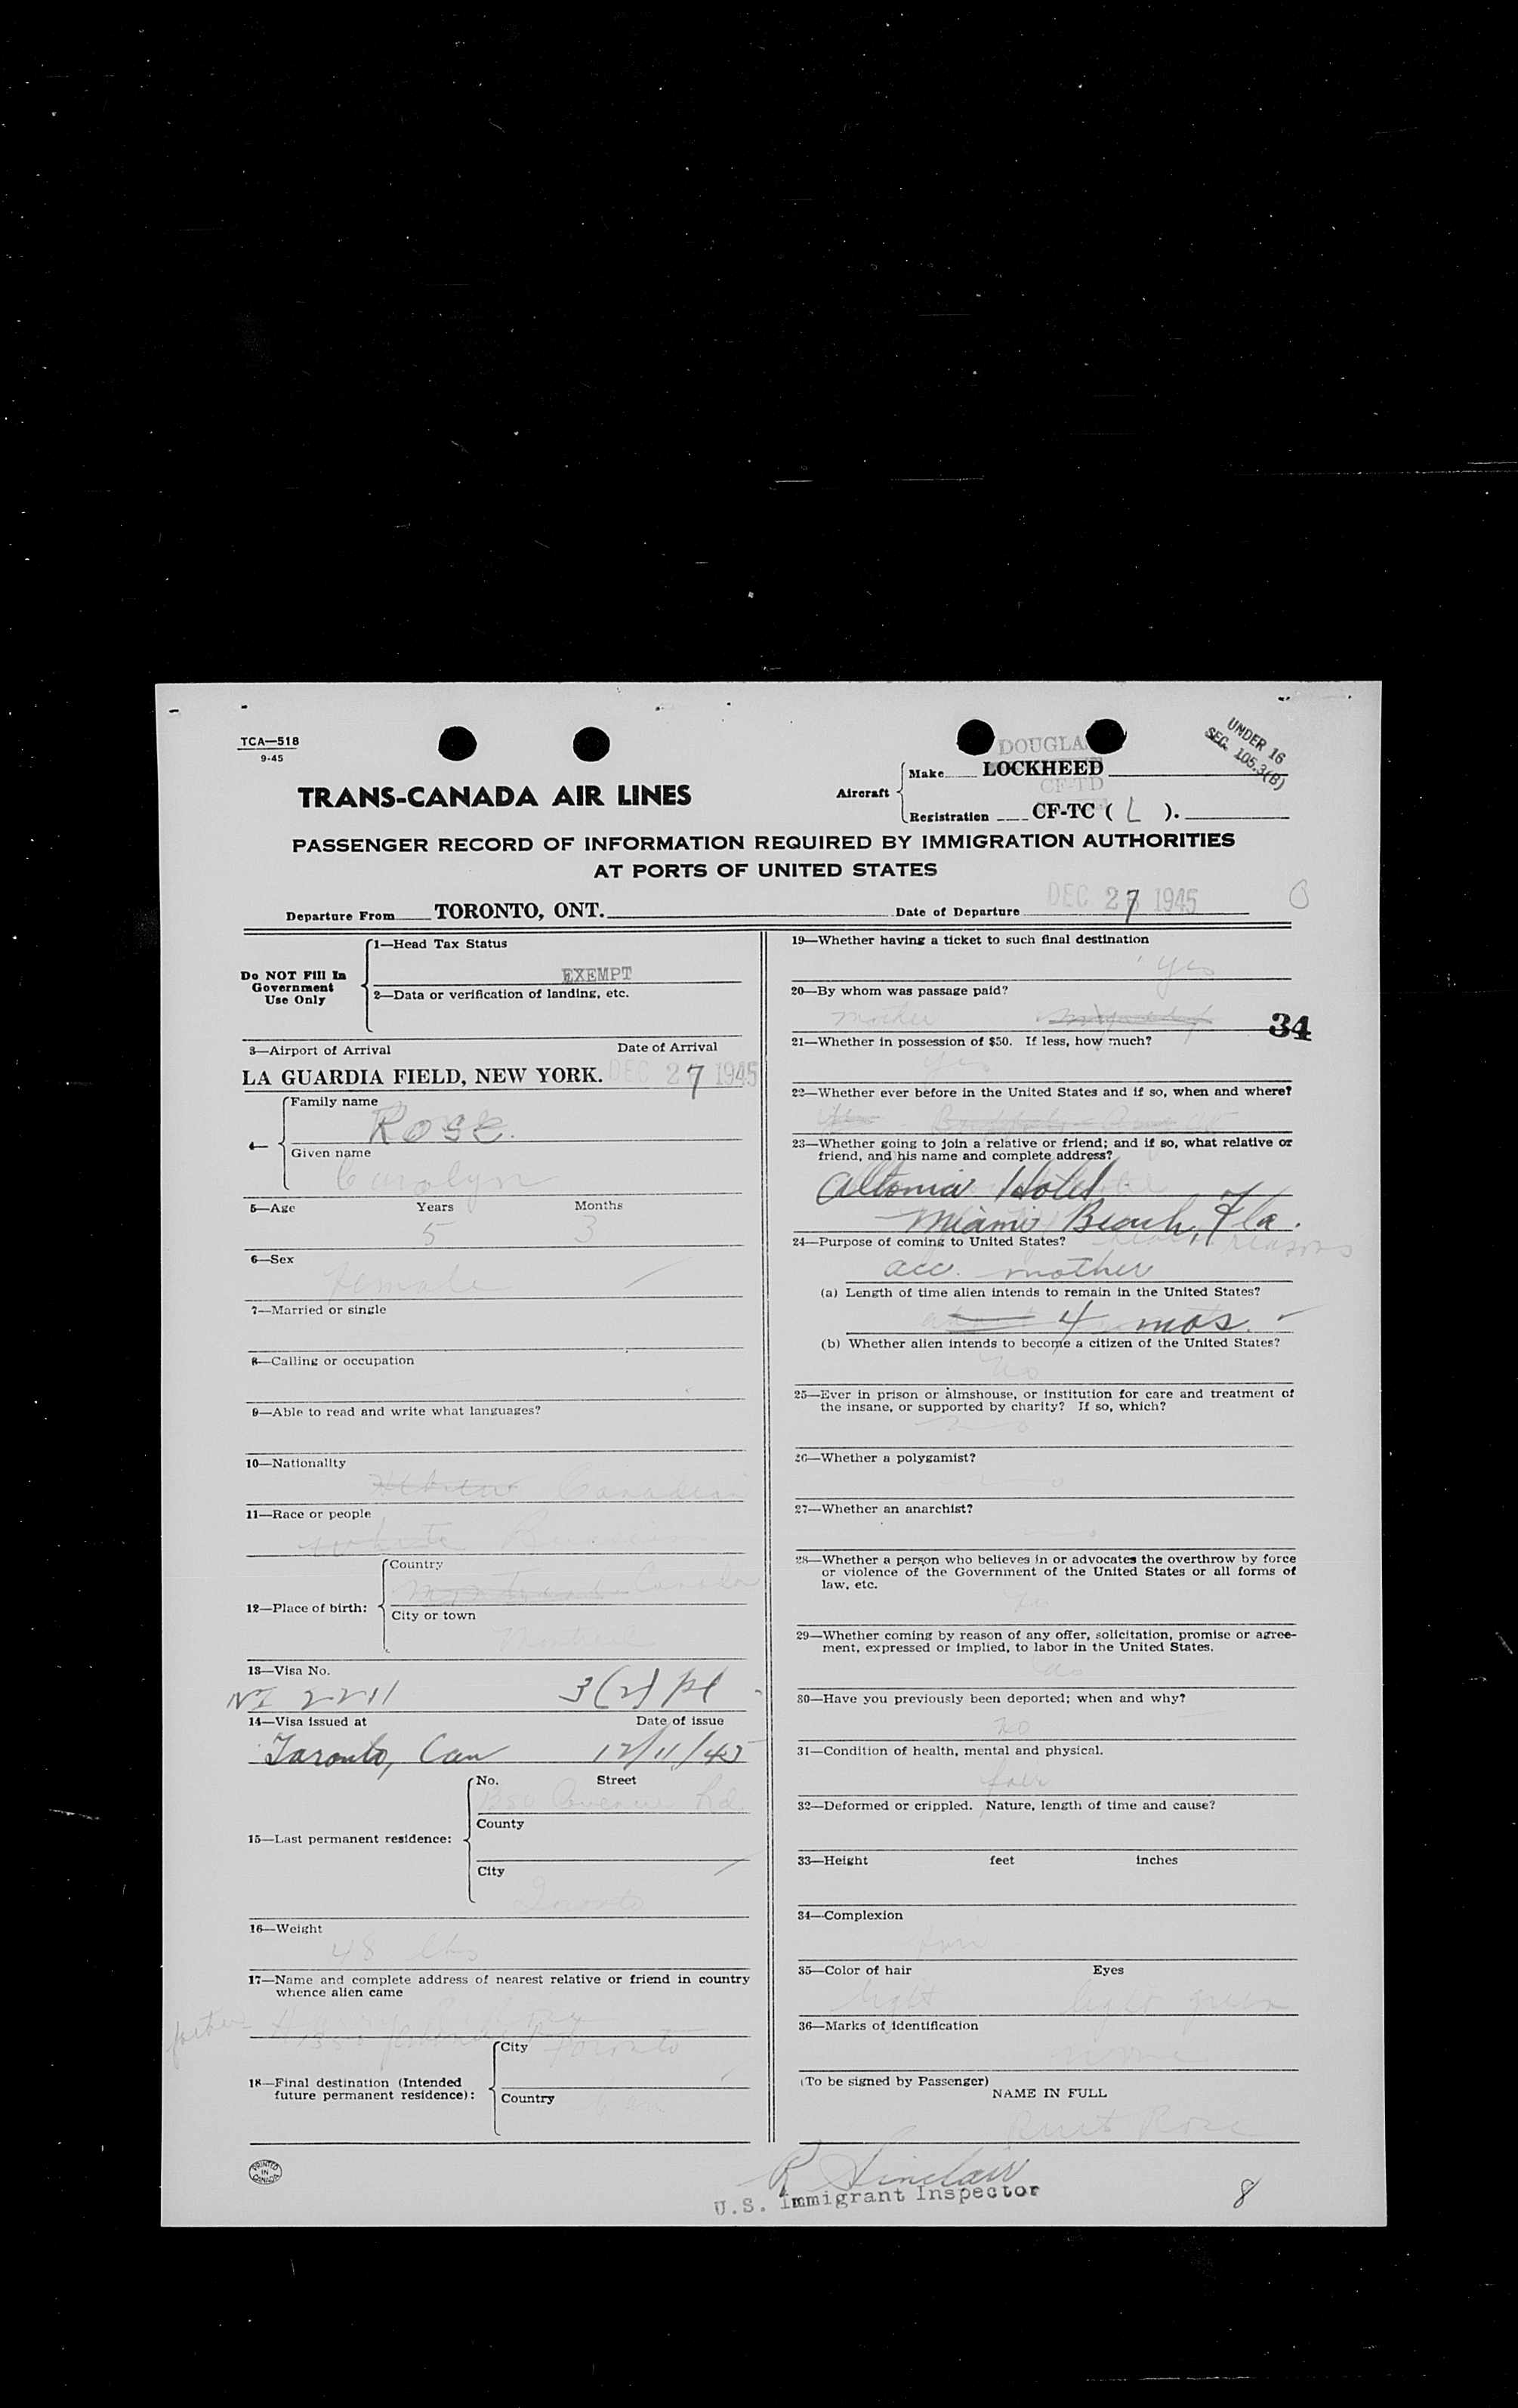 TCA—518
9-45
UNDER 16
SEC. 105.3(B)
DOUGLA
Make LOCKHEED
CF-TD
Aircraft
Registration CF-TC ( L ).
TRANS-CANADA AIR LINES
PASSENGER RECORD OF INFORMATION REQUIRED BY IMMIGRATION AUTHORITIES
AT PORTS OF UNITED STATES
Departure From TORONTO, ONT. Date of Departure DEC 27 1945
Do NOT Fill In
Government
Use Only
1—Head Tax Status
EXEMPT
2—Data or verification of landing, etc.
3—Airport of Arrival Date of Arrival
LA GUARDIA FIELD, NEW YORK. DEC 27 1945
4—
Family name
Rose.
Given name
Carolyn
5—Age Years Months
5 3
6—Sex
Female
7—Married or single
8—Calling or occupation
9—Able to read and write what languages?
10—Nationality
Hebrew Canadian
11—Race or people
white
12—Place of birth:
Country
Montreal Canada
City or town
Montreal
13—Visa No.
NI 2211 3(2) Pl
14—Visa issued at Date of issue
Toronto, Can 12/11/45
15—Last permanent residence:
No. Street
Avenue Rd.
County
City
Toronto
16—Weight
48 lbs
17—Name and complete address of nearest relative or friend in country
whence alien came
father
Toronto
18—Final destination (Intended
future permanent residence):
City
Country
PRINTED
IN
CANADA
19—Whether having a ticket to such final destination
yes
20—By whom was passage paid?
mother
34
21—Whether in possession of $50. If less, how much?
yes
22—Whether ever before in the United States and if so, when and where?
23—Whether going to join a relative or friend; and if so, what relative or
friend, and his name and complete address?
Altonia Hotel
Miami Beach, Fla.
24—Purpose of coming to United States? reasons
acc. mother
(a) Length of time alien intends to remain in the United States?
4 mos.
(b) Whether alien intends to become a citizen of the United States?
No
25—Ever in prison or almshouse, or institution for care and treatment of
the insane, or supported by charity? If so, which?
no
26—Whether a polygamist?
no
27—Whether an anarchist?
no
28—Whether a person who believes in or advocates the overthrow by force
or violence of the Government of the United States or all forms of
law, etc.
no
29—Whether coming by reason of any offer, solicitation, promise or agree-
ment, expressed or implied, to labor in the United States.
no
30—Have you previously been deported; when and why?
no
31—Condition of health, mental and physical.
fair
32—Deformed or crippled. Nature, length of time and cause?
33—Height feet inches
34—Complexion
fair
35—Color of hair Eyes
light light green
36—Marks of identification
none
(To be signed by Passenger)
NAME IN FULL
Rose
R Sinclair
U.S. Immigrant Inspector
8